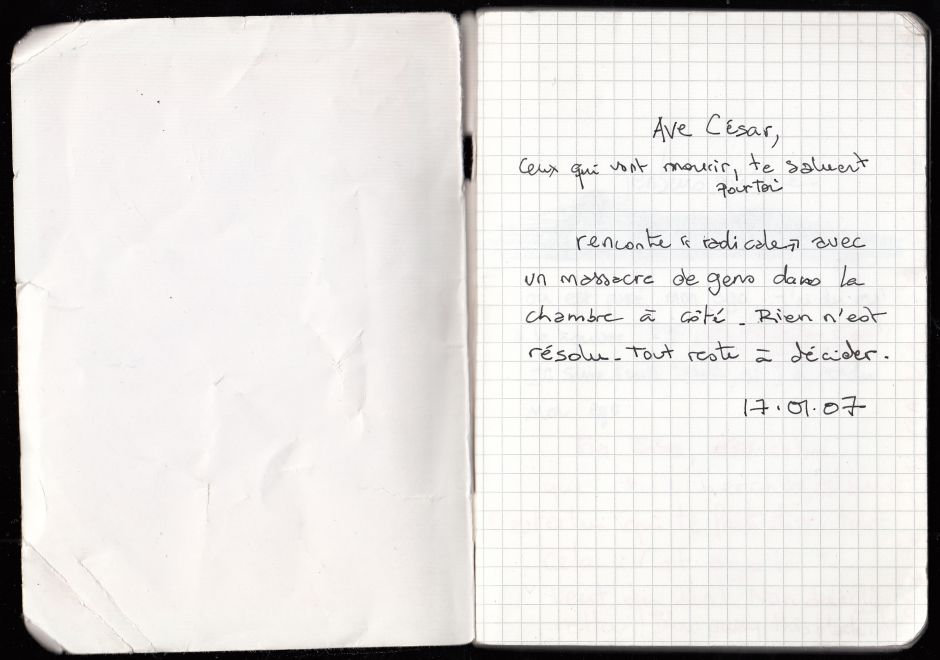 Ave César,
Ceux qui vont mourir, te saluent
pour toi
rencontre « radicale » avec
un massacre de gens dans la
chambre à côté _ Rien n'est
résolu _ Tout reste à décider.
17.01.07